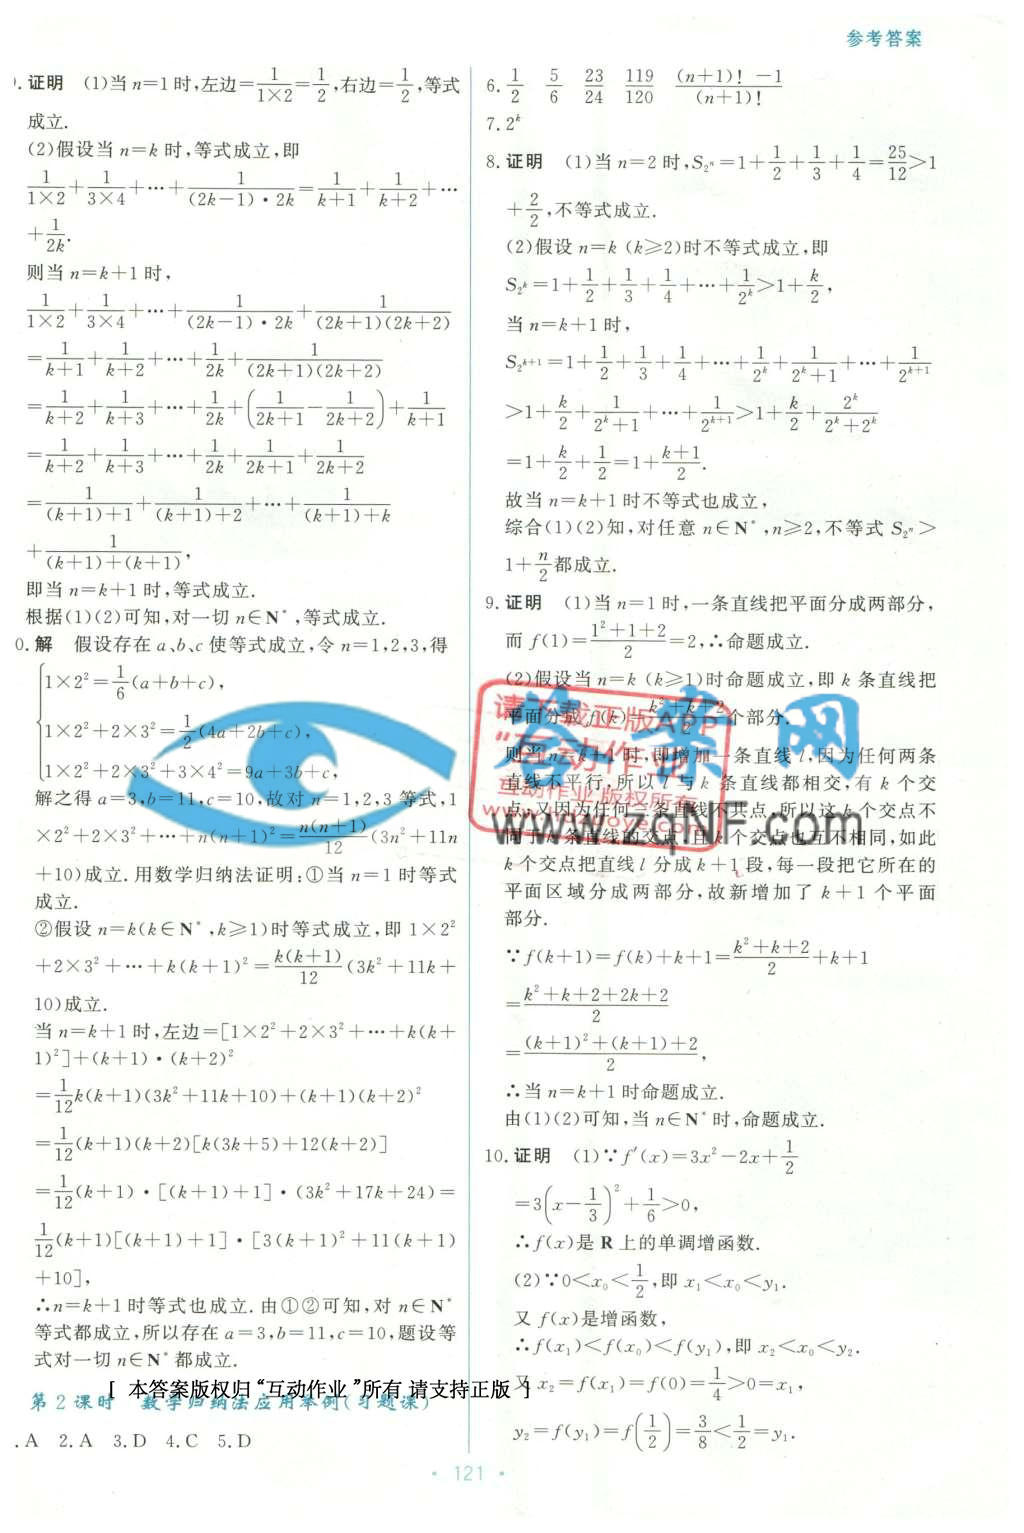 参考答案
.证明 (1)当 n=1 时,左边=1/(1×2)=1/2,右边=1/2,等式
成立.
(2)假设当 n=k 时,等式成立,即
1/(1×2)+1/(3×4)+…+1/((2k-1)·2k)=1/(k+1)+1/(k+2)+…
+1/(2k).
则当 n=k+1 时,
1/(1×2)+1/(3×4)+…+1/((2k-1)·2k)+1/((2k+1)(2k+2))
=1/(k+1)+1/(k+2)+…+1/(2k)+1/((2k+1)(2k+2))
=1/(k+2)+1/(k+3)+…+1/(2k)+(1/(2k+1)-1/(2k+2))+1/(k+1)
=1/(k+2)+1/(k+3)+…+1/(2k)+1/(2k+1)+1/(2k+2)
=1/((k+1)+1)+1/((k+1)+2)+…+1/((k+1)+k)
+1/((k+1)+(k+1)),
即当 n=k+1 时,等式成立.
根据(1)(2)可知,对一切 n∈N*,等式成立.
0.解 假设存在 a、b、c 使等式成立,令 n=1,2,3,得
1×2²=1/6(a+b+c),
1×2²+2×3²=1/2(4a+2b+c),
1×2²+2×3²+3×4²=9a+3b+c,
解之得 a=3,b=11,c=10,故对 n=1,2,3 等式,1
×2²+2×3²+…+n(n+1)²=n(n+1)/12(3n²+11n
+10)成立.用数学归纳法证明:①当 n=1 时等式
成立.
②假设 n=k(k∈N*,k≥1)时等式成立,即 1×2²
+2×3²+…+k(k+1)²=k(k+1)/12(3k²+11k+
10)成立.
当 n=k+1 时,左边=[1×2²+2×3²+…+k(k+
1)²]+(k+1)·(k+2)²
=1/12k(k+1)(3k²+11k+10)+(k+1)(k+2)²
=1/12(k+1)(k+2)[k(3k+5)+12(k+2)]
=1/12(k+1)·[(k+1)+1]·(3k²+17k+24)=
1/12(k+1)[(k+1)+1]·[3(k+1)²+11(k+1)
+10],
∴n=k+1 时等式也成立.由①②可知,对 n∈N*
等式都成立,所以存在 a=3,b=11,c=10,题设等
式对一切 n∈N*都成立.
[ 本答案版权归“互动作业”所有,请支持正版 ]
第 2 课时 数学归纳法应用举例(习题课)
.A 2.A 3.D 4.C 5.D
6.1/2 5/6 23/24 119/120 ((n+1)!-1)/(n+1)!
7.2ᵏ
8.证明 (1)当 n=2 时,S_{2ⁿ}=1+1/2+1/3+1/4=25/12>1
+2/2,不等式成立.
(2)假设 n=k (k≥2)时不等式成立,即
S_{2ᵏ}=1+1/2+1/3+1/4+…+1/2ᵏ>1+k/2,
当 n=k+1 时,
S_{2ᵏ⁺¹}=1+1/2+1/3+1/4+…+1/2ᵏ+1/(2ᵏ+1)+…+1/2ᵏ⁺¹
>1+k/2+1/(2ᵏ+1)+…+1/2ᵏ⁺¹>1+k/2+2ᵏ/(2ᵏ+2ᵏ)
=1+k/2+1/2=1+(k+1)/2.
故当 n=k+1 时不等式也成立,
综合(1)(2)知,对任意 n∈N*,n≥2,不等式 S_{2ⁿ}>
1+n/2都成立.
9.证明 (1)当 n=1 时,一条直线把平面分成两部分,
而 f(1)=(1²+1+2)/2=2,∴命题成立.
(2)假设当 n=k (k≥1)时命题成立,即 k 条直线把
平面分成 f(k)=(k²+k+2)/2个部分.
则当 n=k+1 时,即增加一条直线 l,因为任何两条
直线不平行,所以 l 与 k 条直线都相交,有 k 个交
点,又因为任何三条直线不共点,所以这 k 个交点不
同于 k 条直线的交点,且 k 个交点也互不相同,如此
k 个交点把直线 l 分成 k+1 段,每一段把它所在的
平面区域分成两部分,故新增加了 k+1 个平面
部分.
∵f(k+1)=f(k)+k+1=(k²+k+2)/2+k+1
=(k²+k+2+2k+2)/2
=((k+1)²+(k+1)+2)/2,
∴当 n=k+1 时命题成立.
由(1)(2)可知,当 n∈N*时,命题成立.
10.证明 (1)∵f′(x)=3x²-2x+1/2
=3(x-1/3)²+1/6>0,
∴f(x)是 R 上的单调增函数.
(2)∵0<x₀<1/2,即 x₁<x₀<y₁.
又 f(x)是增函数,
∴f(x₁)<f(x₀)<f(y₁),即 x₂<x₀<y₂.
又 x₂=f(x₁)=f(0)=1/4>0=x₁,
y₂=f(y₁)=f(1/2)=3/8<1/2=y₁.
请下载正版APP
“互动作业”
互动作业 版权所有
www.hdzuoye.com
答案网
www.zqinf.com
· 121 ·